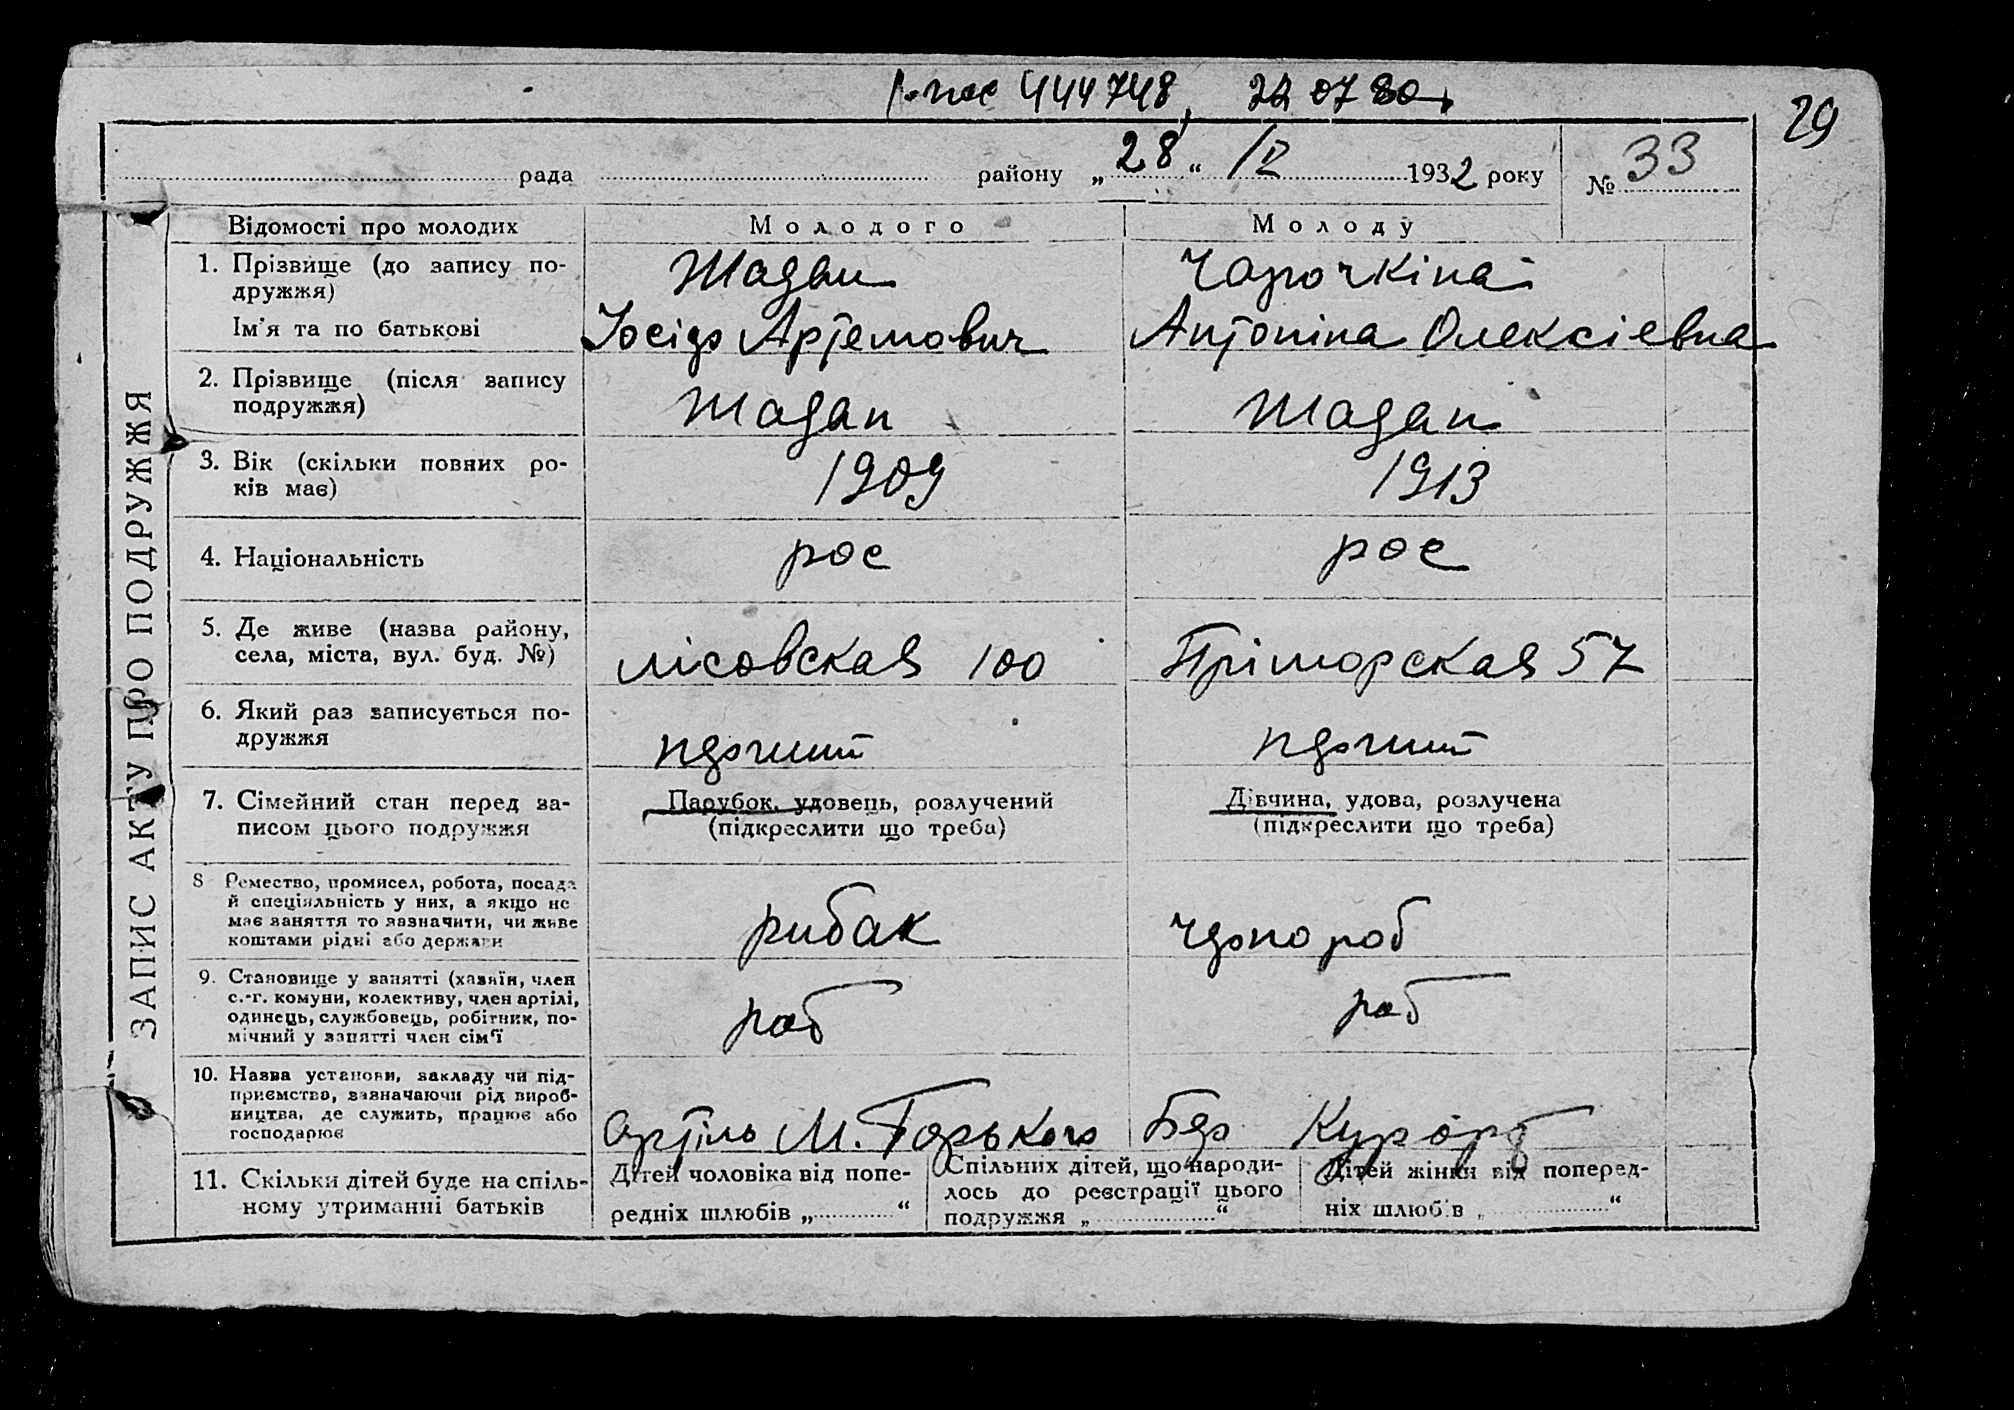 444748, 22 07 80
29
рада району „28“ IV 1932 року № 33
Відомості про молодих Молодого Молоду
1. Прізвище (до запису по-
дружжя)
Жадан Чарочкіна
Ім'я та по батькові Іосіф Артемович Антоніна Олексієвна
2. Прізвище (після запису
подружжя)
Жадан Жадан
3. Вік (скільки повних ро-
ків має)
1909 1913
4. Національність рос рос
5. Де живе (назва району,
села, міста, вул. буд. №)
лісовская 100 Пріморская 57
6. Який раз записується по-
дружжя
7. Сімейний стан перед за-
писом цього подружжя
Парубок, удовець, розлучений
(підкреслити що треба)
Дівчина, удова, розлучена
(підкреслити що треба)
8 Ремество, промисел, робота, посада
й спеціяльність у них, а якщо не
має заняття то зазначити, чи живе
коштами рідні або держави
рибак чорнороб
9. Становище у занятті (хазяїн, член
с.-г. комуни, колективу, член артілі,
одинець, службовець, робітник, по-
мічний у занятті член сім'ї
роб роб
10. Назва установи, закладу чи під-
приємства, зазначаючи рід вироб-
ництва, де служить, працює або
господарює
Артіль М. Горького Бер Курорт
11. Скільки дітей буде на спіль-
ному утриманні батьків
Дітей чоловіка від попе-
редніх шлюбів „ “
Спільних дітей, що народи-
лось до реєстрації цього
подружжя „ “
Дітей жінки від поперед-
ніх шлюбів „ “
ЗАПИС АКТУ ПРО ПОДРУЖЖЯ